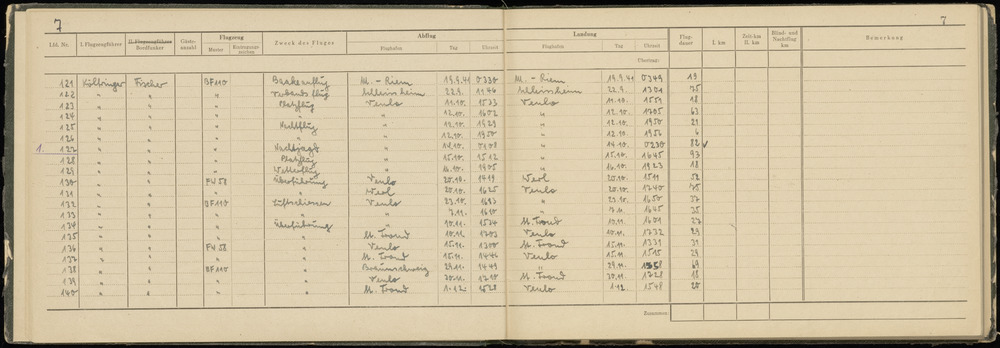 7
7
Lfd. Nr. I. Flugzeugführer II. Flugzeugführer Bordfunker Gäste-anzahl Flugzeug Muster Eintragungs-zeichen Zweck des Fluges Abflug Flughafen Tag Uhrzeit Landung Flughafen Tag Uhrzeit Flug-dauer I. km Zeit-km II. km Blind- und Nachtflug km Bemerkung
Übertrag:
121 Fischer BF110 M. - Riem 19.9.41 0330 M. - Riem 19.9.41 0349 19
122 " " " Verbandsflug Schleissheim 22.9. 1146 Schleissheim 22.9. 1301 75
123 " " " Platzflug Venlo 11.10. 1533 Venlo 11.10. 1551 18
124 " " " " " 12.10. 1602 " 12.10. 1705 63
125 " " " Nachtflug " 12.10. 1929 " 12.10. 1950 21
126 " " " " " 12.10. 1950 " 12.10. 1956 6
1. 127 " " " Nachtjagd " 14.10. 0108 " 14.10. 0230 82 ✓
128 " " " Platzflug " 15.10. 1512 " 15.10. 1645 93
129 " " " " 16.10. 1905 " 16.10. 1923 18
130 " " FW 58 Überführung Venlo 20.10. 1419 Werl 20.10. 1511 52
131 " " " " Werl 20.10. 1625 Venlo 20.10. 1740 75
132 " " BF110 Luftschiessen Venlo 23.10. 1613 " 23.10. 1650 37
133 " " " " " 7.11. 1610 " 7.11. 1645 35
134 " " " Überführung " 10.11. 1534 St. Trond 10.11. 1601 27
135 " " " " St. Trond 10.11. 1703 Venlo 10.11. 1732 29
136 " " FW 58 " Venlo 15.11. 1300 St. Trond 15.11. 1331 31
137 " " " " St. Trond 15.11. 1446 Venlo 15.11. 1515 29
138 " " BF110 " Braunschweig 29.11. 1449 " 29.11. 1558 69
139 " " " " Venlo 30.11. 1710 St. Trond 30.11. 1728 18
140 " " " " St. Trond 1.12. 1528 Venlo 1.12. 1548 20
Zusammen: